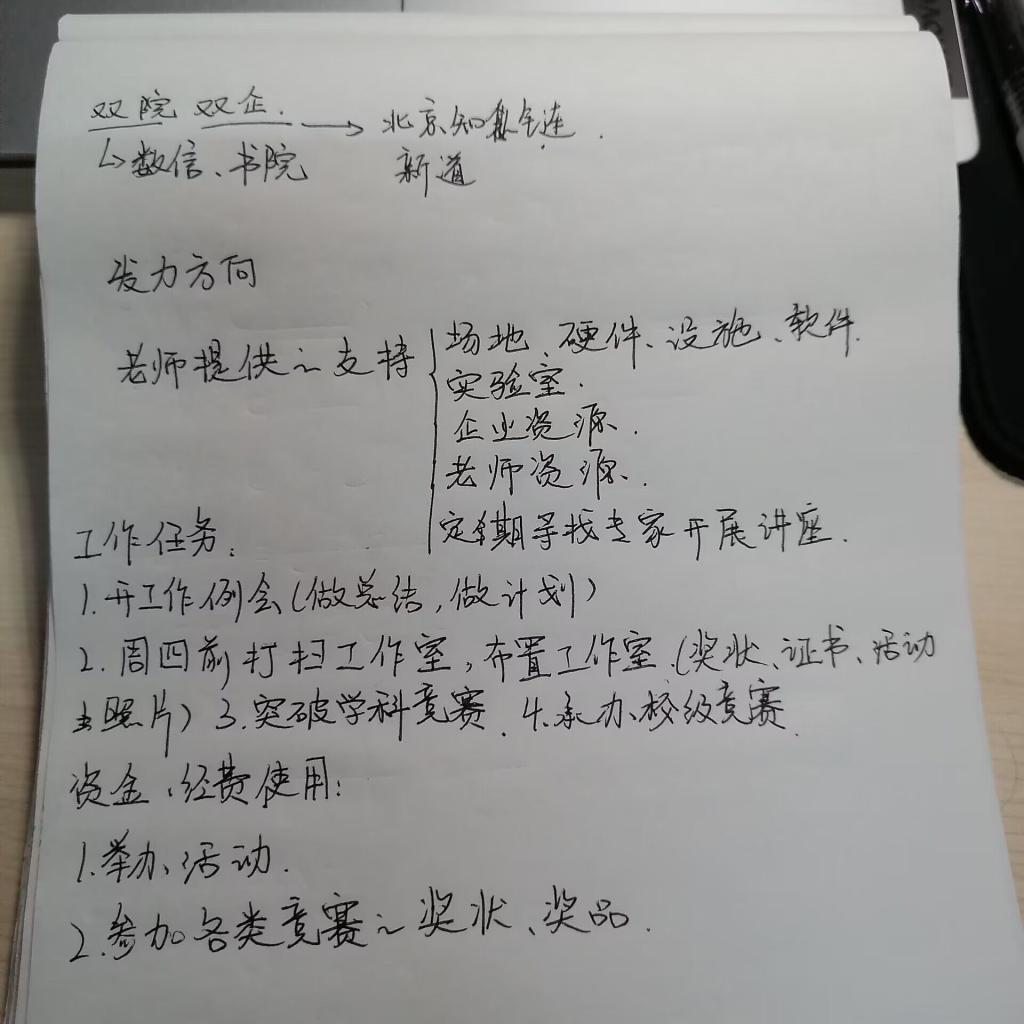 双院 双企. → 北京知链.
↳数信、书院 新道
发力方向
老师提供之支持
场地、硬件、设施、软件.
实验室.
企业资源、.
老师资源、.
定期寻找专家开展讲座.
工作任务:
1.开工作例会(做总结,做计划)
2.周四前打扫工作室,布置工作室.(奖状、证书、活动
照片) 3.突破学科竞赛. 4.承办校级竞赛.
资金、经费使用:
1.举办活动.
2.参加各类竞赛之奖状、奖品.